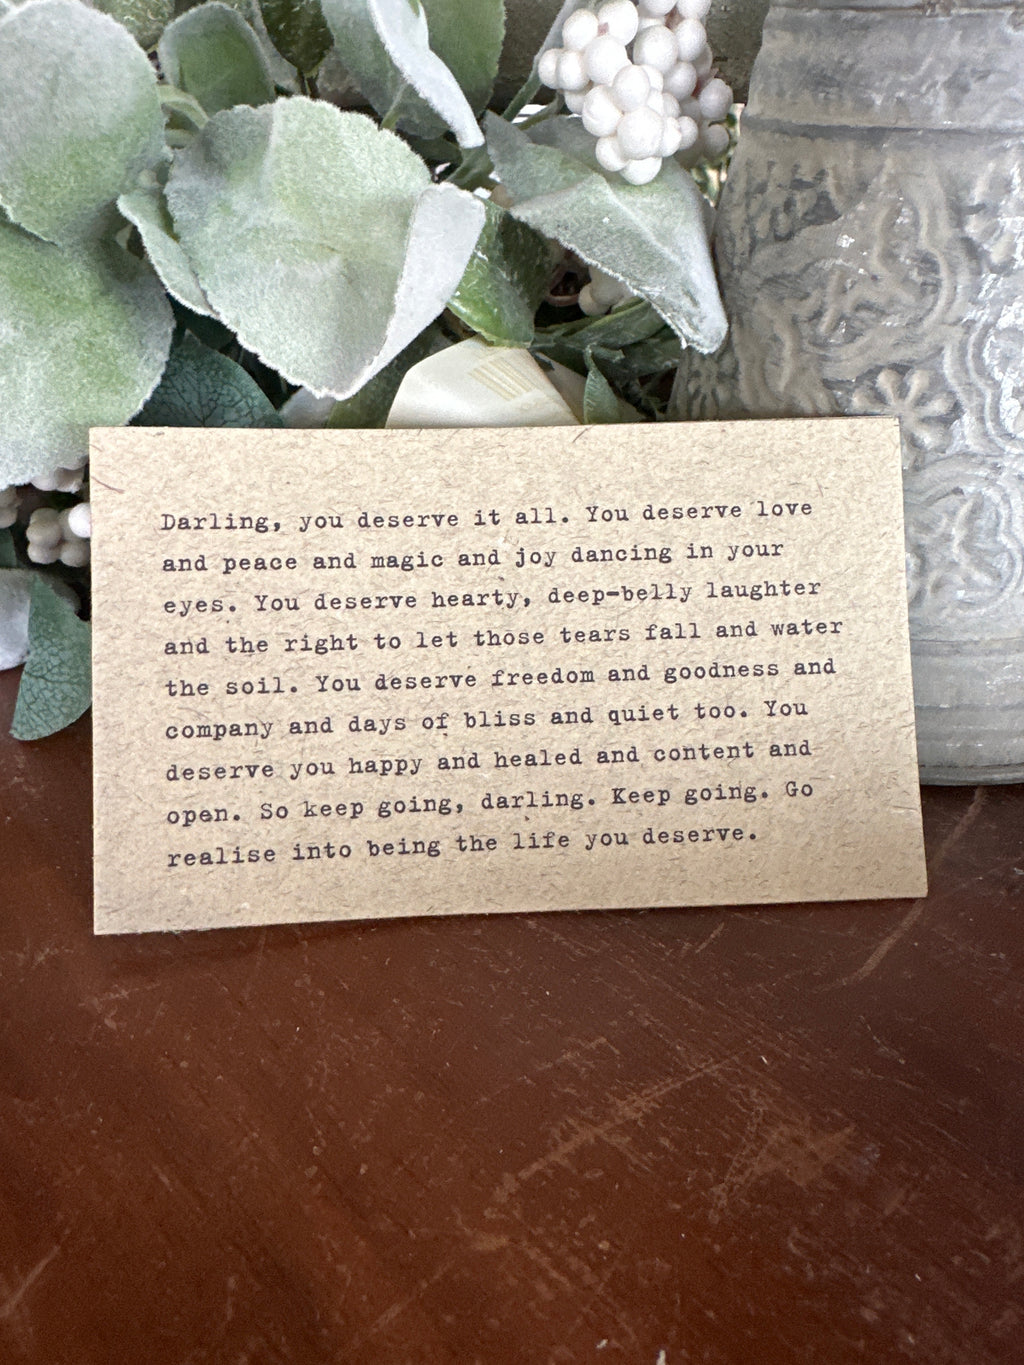 Darling, you deserve it all. You deserve love
and peace and magic and joy dancing in your
eyes. You deserve hearty, deep-belly laughter
and the right to let those tears fall and water
the soil. You deserve freedom and goodness and
company and days of bliss and quiet too. You
deserve you happy and healed and content and
open. So keep going, darling. Keep going. Go
realise into being the life you deserve.